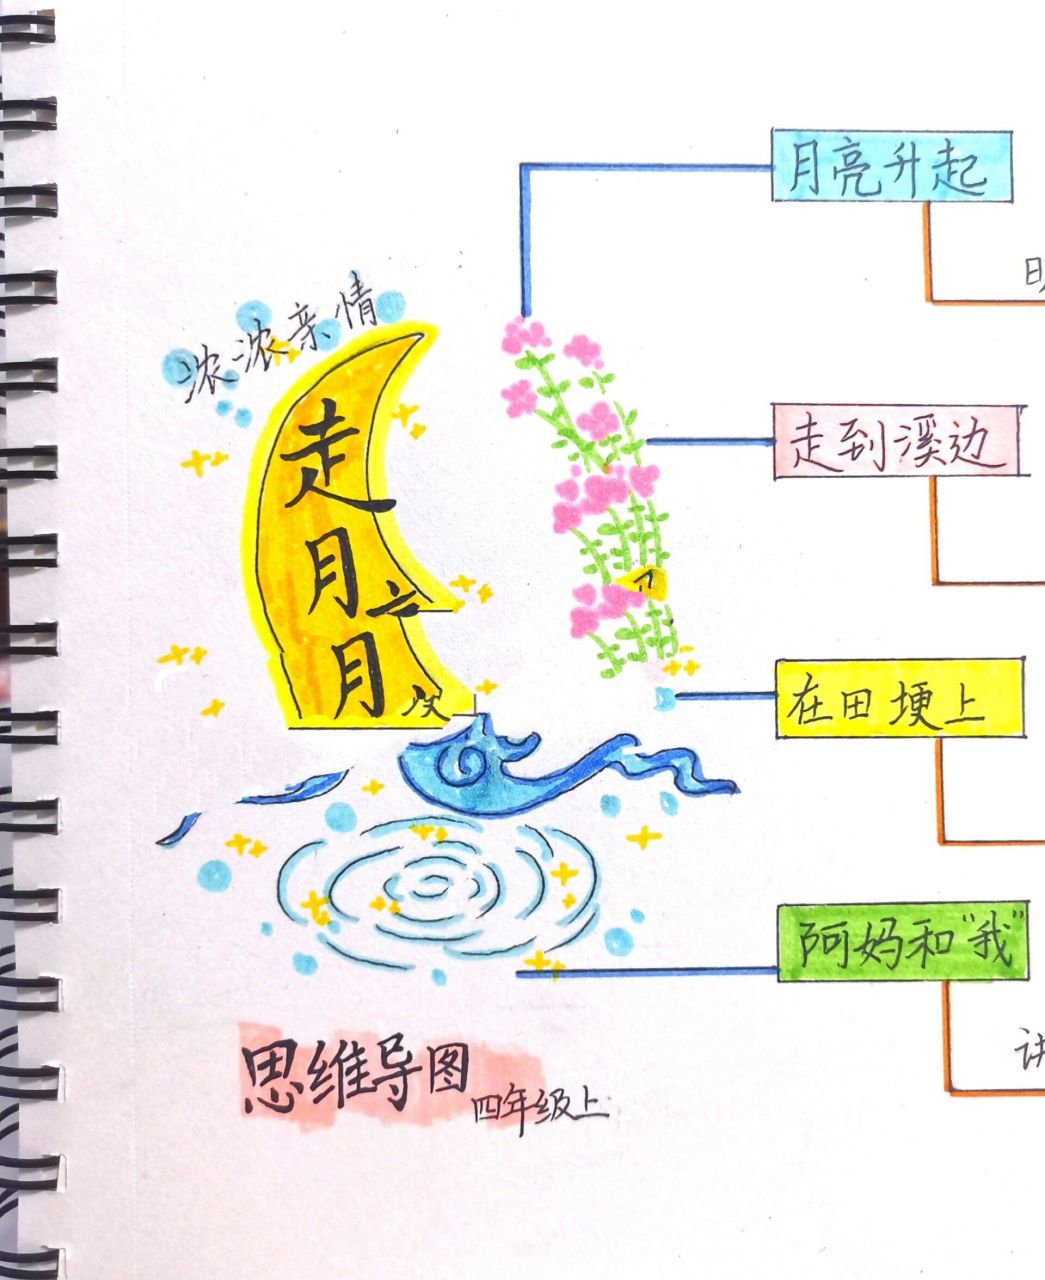 浓浓亲情
走月
月
月亮升起
走到溪边
在田埂上
阿妈和"我"
思维导图
四年级上